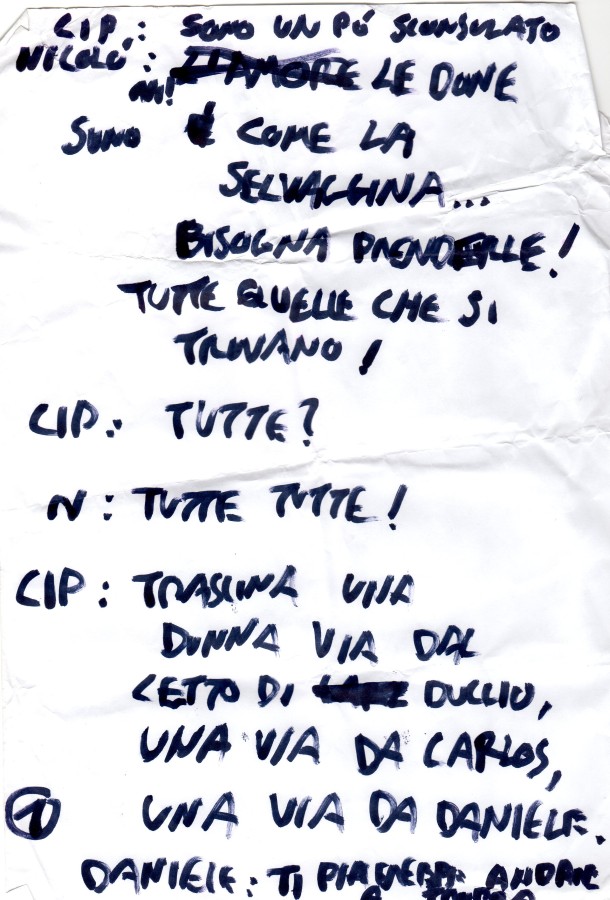 CIP: SONO UN PÓ SCONSOLATO
NICOLÓ: LE DONE
SONO COME LA
SELVAGGINA...
BISOGNA PRENDERLE!
TUTTE QUELLE CHE SI
TROVANO!
CIP: TUTTE?
N: TUTTE TUTTE!
CIP: TRASCINA UNA
DONNA VIA DAL
LETTO DI DUCCIO,
UNA VIA DA CARLOS,
1 UNA VIA DA DANIELE.
DANIELE: TI ANDARE
A